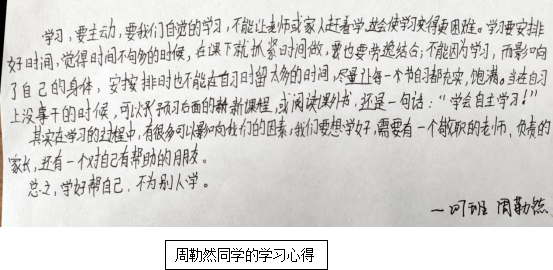 学习，要主动，要我们自觉的学习，不能让老师或家人赶着学，这会使学习变得更困难。学习要安排
好时间，觉得时间不够多的时候，在课下就抓紧时间做，要也要劳逸结合；不能因为学习，而影响
了自己的身体，安排时也不能在自习时留太多的时间，尽量让每一个节自习都充实，饱满。当在自习
上没事干的时候，可以予预习后面的新课程，或阅读课外书，还是一句话：“学会自主学习！”
其实在学习的过程中，有很多可以影响我们的因素，我们要想学好，需要有一个敬职的老师，负责的
家长，还有一个对自己有帮助的朋友。
总之，学好帮自己，不为别人学。
周勤然
周勤然同学的学习心得